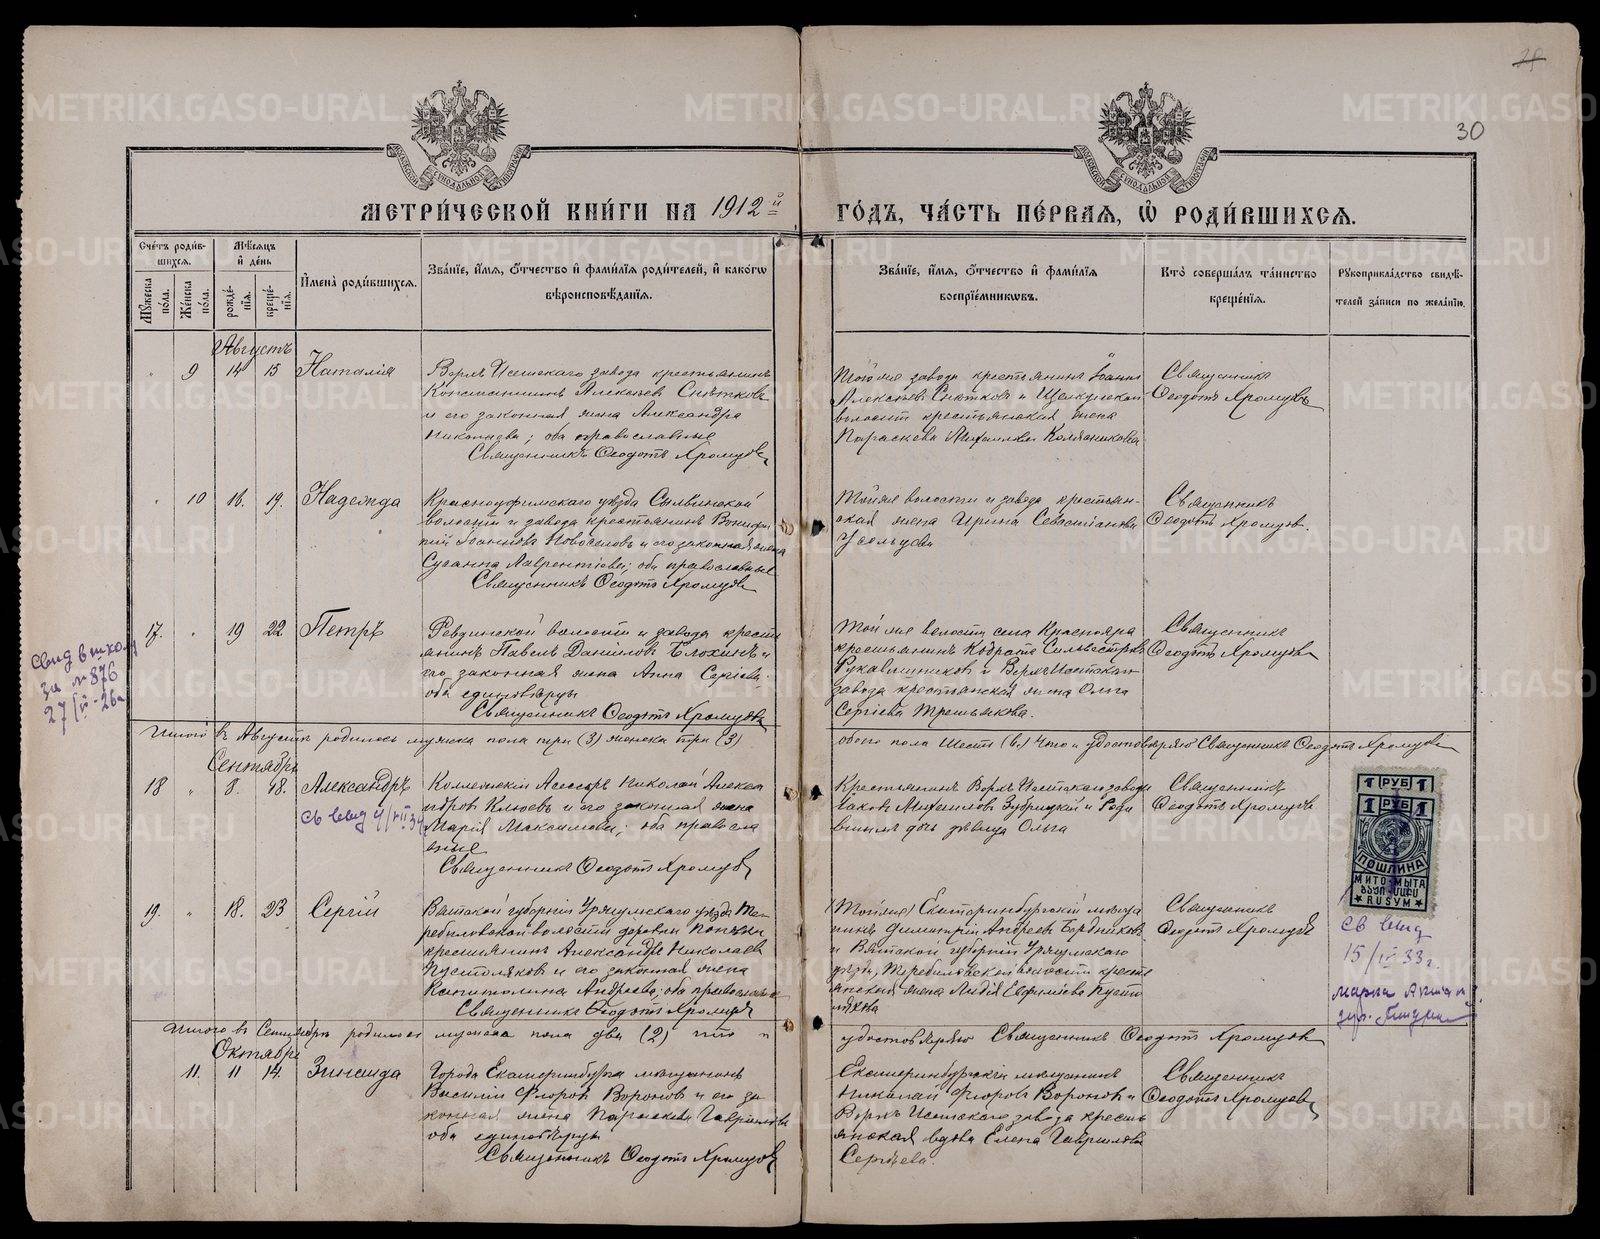 29
30
МЕТРИ́ЧЕСКОЙ КНИ́ГИ НА 1912й
ГО́ДЪ, ЧА́СТЬ ПЕ́РВАЯ, Ѡ РОДИ́ВШИХСЯ.
Сче́тъ роди́в-
шихся.
Мѣсяцъ
и҆ де́нь
Мꙋжеска пола.
Же́нска пола.
рожде́-
нїѧ.
креще́-
нїѧ.
И҆мена̀ роди́вшихся.
Зва́нїе, и҆́мѧ, ѻ҆́тчество и҆ фами́лїѧ роди́телей, и҆ како́гѡ
вѣроисповѣ́данїѧ.
Зва́нїе, и҆́мѧ, ѻ҆́тчество и҆ фами́лїѧ
воспрїе́мникѡвъ.
Кто̀ соверша́лъ та́инство
креще́нїѧ.
Рꙋкоприкла́дство свидѣ́-
телей за́писи по жела́нїю.
Августъ
9 14 15 Наталія
Верхъ Исетскаго завода крестьянинъ
Константинъ Алексѣевъ Снѣтковъ
и его законная жена Александра
Николаева; оба православные
Священникъ Ѳеодотъ Хромцовъ
Тойже завода крестьянинъ Іоаннъ
Алексѣевъ Снѣтковъ и
волости крестьянская жена
Параскева
Священникъ
Ѳеодотъ Хромцовъ
10 16. 19. Надежда
Красноуфимскаго уѣзда Сылвинской
волости и завода крестьянинъ
Іоанновъ Новоселовъ и его законная жена
Сусанна Лаврентіева; оба православные
Священникъ Ѳеодотъ Хромцовъ
Тойже волости и завода крестьян-
ская жена Ирина Севастіанова
Усольцева
Священникъ
Ѳеодотъ Хромцовъ.
17. 19 22 Петръ
Ревдинской волости и завода кресть
янинъ Павелъ Даніиловъ Блохинъ и
его законная жена Анна Сергіева
оба единовѣрцы
Священникъ Ѳеодотъ Хромцовъ
Той же волости села Краснояра
крестьянинъ Кодратъ Сильвестровъ
Рукавишниковъ и Верхъ Исетскаго
завода крестьянская жена Ольга
Сергіева Третьякова.
Священникъ
Ѳеодотъ Хромцовъ
за № 876
27/
Итого въ Августѣ родилось мужска пола три (3) женска три (3)
обоего пола шесть (6.) Что и удостовѣряю Священникъ Ѳеодотъ Хромцовъ
Сентябрь
18 8. 18. Александръ
Коллежскій Ассесоръ Николай Алекса
ндровъ Клюевъ и его законная жена
Марія Максимова; оба правосла
вные
Священникъ Ѳеодотъ Хромцовъ
Крестьянинъ Верхъ Исетскаго завода
Іаковъ Михаиловъ Зубрицкій и
дочь дѣвица Ольга
Священникъ
Ѳеодотъ Хромцовъ
1 РУБ 1
1 РУБ 1
ПОШЛИНА
МИТО МЫТА
RUSYM
19. 18. 23 Сергій
Вятской губерніи Уржумскаго уѣзда Те-
ребиловской волости деревни
крестьянинъ Александръ Николаевъ
Пустоляковъ и его законная жена
Капитолина Андреева; оба православные
Священникъ Ѳеодотъ Хромцовъ
Екатеринбургскій мѣща
нинъ Димитрій Андреевъ Бердниковъ
и Вятской губерніи Уржумскаго
уѣзда, Теребиловской волости кресть
янская жена Лидія Евфиміева Пусто
лякова
Священникъ
Ѳеодотъ Хромцовъ
15/ 33г.
марка
Итого въ Сентябрѣ родилось мужска пола два (2) что и
удостовѣряю Священникъ Ѳеодотъ Хромцовъ
Октябрь
11. 11 14. Зинаида
Города Екатеринбурга мѣщанинъ
Василій Флоровъ Вороновъ и его за
конная жена Параскева Гавриилова
оба единовѣрцы
Священникъ Ѳеодотъ Хромцовъ
Екатеринбургскій мѣщанинъ
Николай Флоровъ Вороновъ и
Верхъ Исетскаго завода кресть
янская вдова Елена Гавриилова
Сергѣева.
Священникъ
Ѳеодотъ Хромцовъ
METRIKI.GASO-URAL.RU